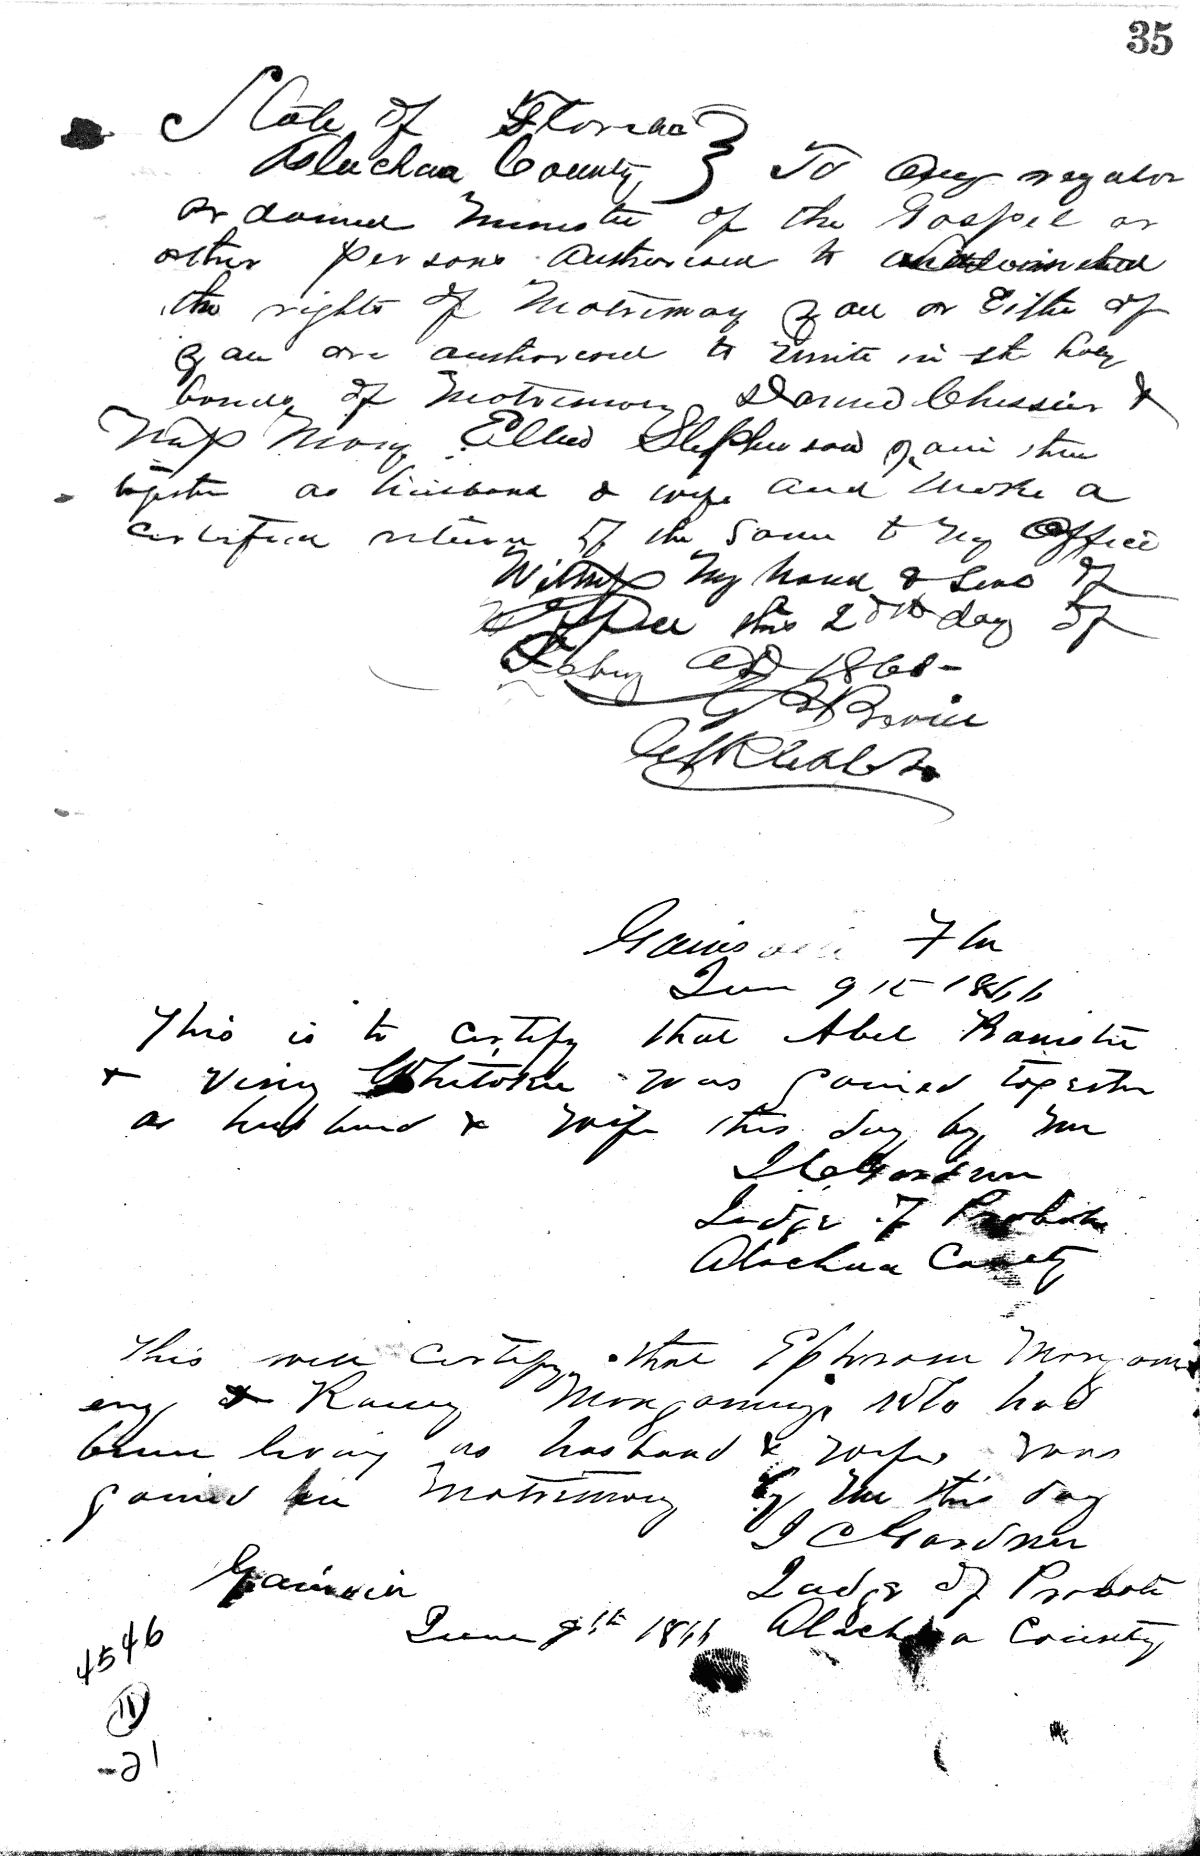 35
State of Florida
Alachua County } To Any regular
or dained Minister of the Gospel or
other persons authorised to
the rights of Matrimony you or Either of
you are authorised to Unite in the holy
bonds of Matrimony &
Miss Mary Ellen Stephenson join them
together as husband & wife and make a
certified return of the same to My Office
Witness My hand & Seal of
Office this day of
AD 1868
Gainsville Fla
June 9th 1866
This is to certify that Abel Banister
& was joined together
as husband & wife this day by me
J C Gardner
Judge of Probate
Alachua County
This will certify that Ephraim
& who had
been living as husband & wife, was
joined in Matrimony by me this day
J C Gardner
Judge of Probate
June 9th 1866 Alachua County
4546
11
-21